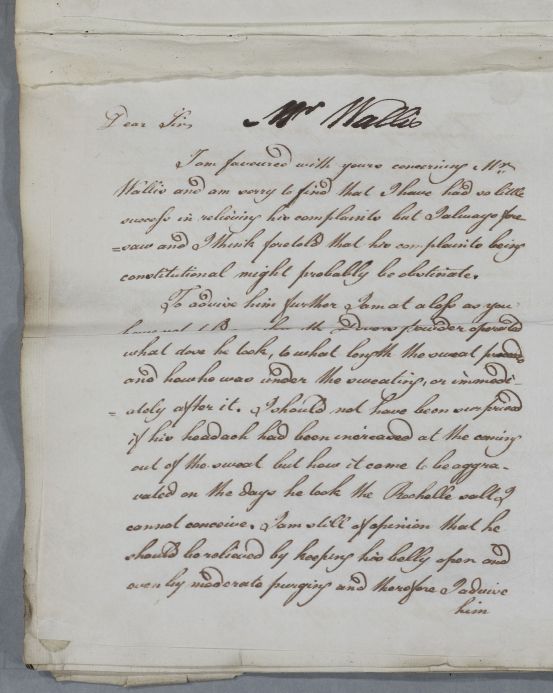 Mr Wallis
Dear Sir,
I am favoured with yours concerning Mr
Wallis and am sorry to find that I have had so little
success in relieving his complaints but I always fore
=saw and I think foretold that his complaints being
constitutional might probably be obstinate.
To advise him further I am at a loss as you
have not the Dovers powder operated
what dose he took, to what length the sweat proceeded
and how he was under the sweating, or immedi-
=ately after it. I should not have been surprised
if his headach had been increased at the coming
out of the sweat but how it came to be aggra-
vated on the days he took the Rochelle salt I
cannot conceive. I am still of opinion that he
should be relieved by keeping his belly open and
even by moderate purging and therefore I advise
him